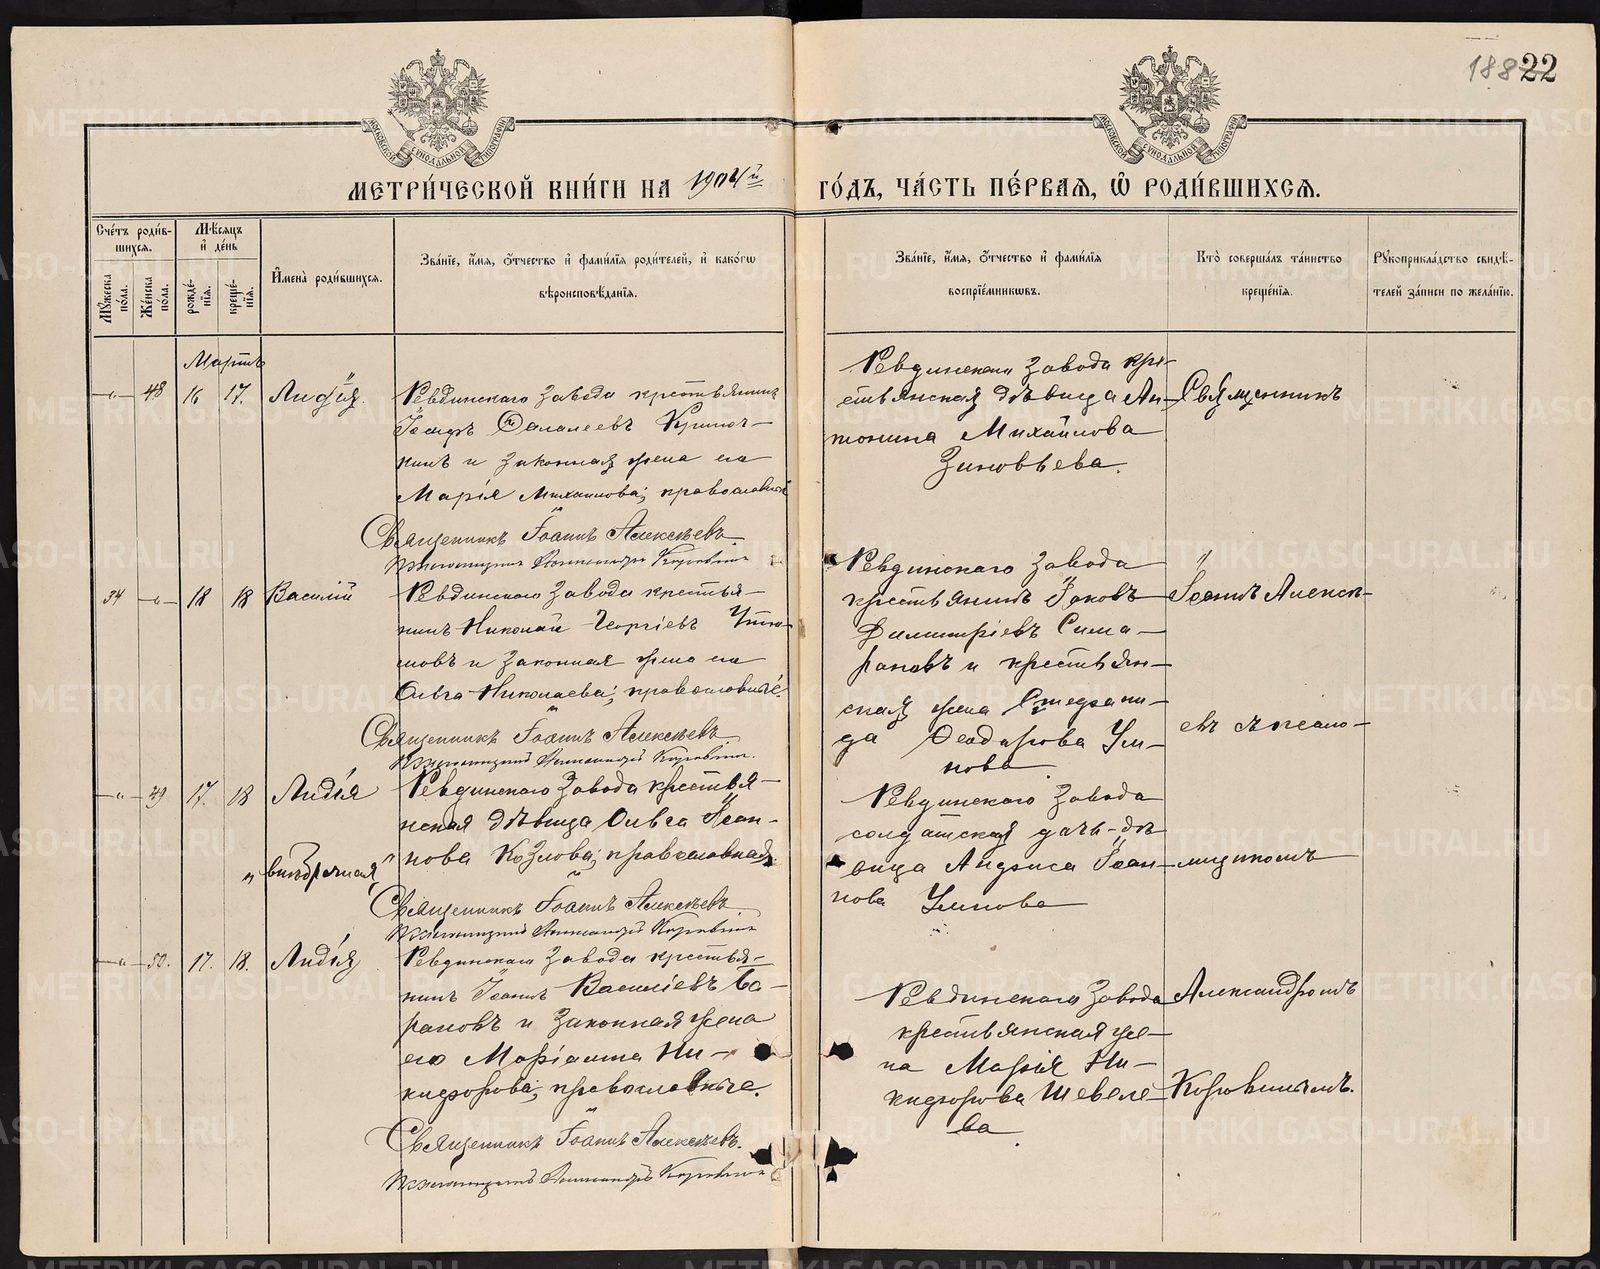 188 22
МЕТРИ́ЧЕСКОЙ КНИ́ГИ НА 1904й ГО́ДЪ, ЧА́СТЬ ПЕ́РВАѦ, Ѡ҆ РОДИ́ВШИХСѦ.
Сче́тъ роди́в-
шихсѧ.
Мꙋ́жеска
по́ла.
Же́нска
по́ла.
Мѣ́сѧцъ
и҆ де́нь
рожде́-
нїѧ.
креще́-
нїѧ.
И҆мена̀ роди́вшихсѧ.
Зва́нїе, и҆́мѧ, ѻ҆́тчество и҆ фами́лїѧ роди́телей, и҆ како́гѡ
вѣроисповѣ́данїѧ.
Зва́нїе, и҆́мѧ, ѻ҆́тчество и҆ фами́лїѧ
воспрїе́мникѡвъ.
Кто̀ соверша́лъ та́инство
креще́нїѧ.
Рꙋкоприкла́дство свидѣ́-
телей за́писи по жела́нїю.
Мартъ
48 16 17. Лидія.
Ревдинскаго завода крестьянинъ
Іосифъ
и законная жена его
Марія Михаилова; православные
Священникъ Іоаннъ Алексѣевъ
Псаломщикъ Александръ Коровинъ
Ревдинскаго завода кре-
стьянская дѣвица Ан-
тонина Михайлова
Зиновьева.
Священникъ
34 18 18 Василій
Ревдинскаго завода крестья-
нинъ Николай Георгіевъ
и законная жена его
Ольга Николаева; православные
Священникъ Іоаннъ Алексѣевъ
Псаломщикъ Александръ Коровинъ.
Ревдинскаго завода
крестьянинъ Іаковъ
Димитріевъ
и крестьян-
ская жена Стефани-
да Феодорова Ум-
нова
Іоаннъ Алексѣ-
евъ съ псало-
49 17. 18 Лидія
„внѣбрачная“
Ревдинскаго завода крестья-
нская дѣвица Ольга Іоан-
нова Козлова; православная
Священникъ Іоаннъ Алексѣевъ
Псаломщикъ Александръ Коровинъ
Ревдинскаго завода
солдатская дочь-дѣ-
вица Анфиса Іоан-
нова Умнова
мщикомъ
50. 17. 18. Лидія
Ревдинскаго завода крестья-
нинъ Іоаннъ Василіевъ Ба-
рановъ и законная жена
его Маріамна Ни-
кифорова; православные.
Священникъ Іоаннъ Алексѣевъ.
Псаломщикъ Александръ Коровинъ
Ревдинскаго завода
крестьянская же-
на Марія Ни-
кифорова Шевеле-
ва
Александромъ
Коровинымъ.
METRIKI.GASO-URAL.RU